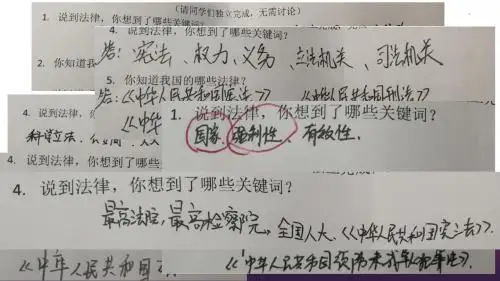 （请同学们独立完成，无需讨论）
1. 说到法律，你想到了哪些关键词？
4. 说到法律，你想到了哪些关键词？
答：宪法、权力、义务、立法机关、司法机关
2. 你知道我
5. 你知道我国的哪些法律？
答：《中华人民共和国宪法》
《中华
4. 说到法律，你
科学立法、
1. 说到法律，你想到了哪些关键词？
国家、强制性、有效性、
4. 说到法律，你想到了哪些
4. 说到法律，你想到了哪些关键词？
最高法院，最高检察院，全国人大、《中华人民共和国宪法》
《中华人民共和国
《中华人民共和国预防未成年人犯罪法》.